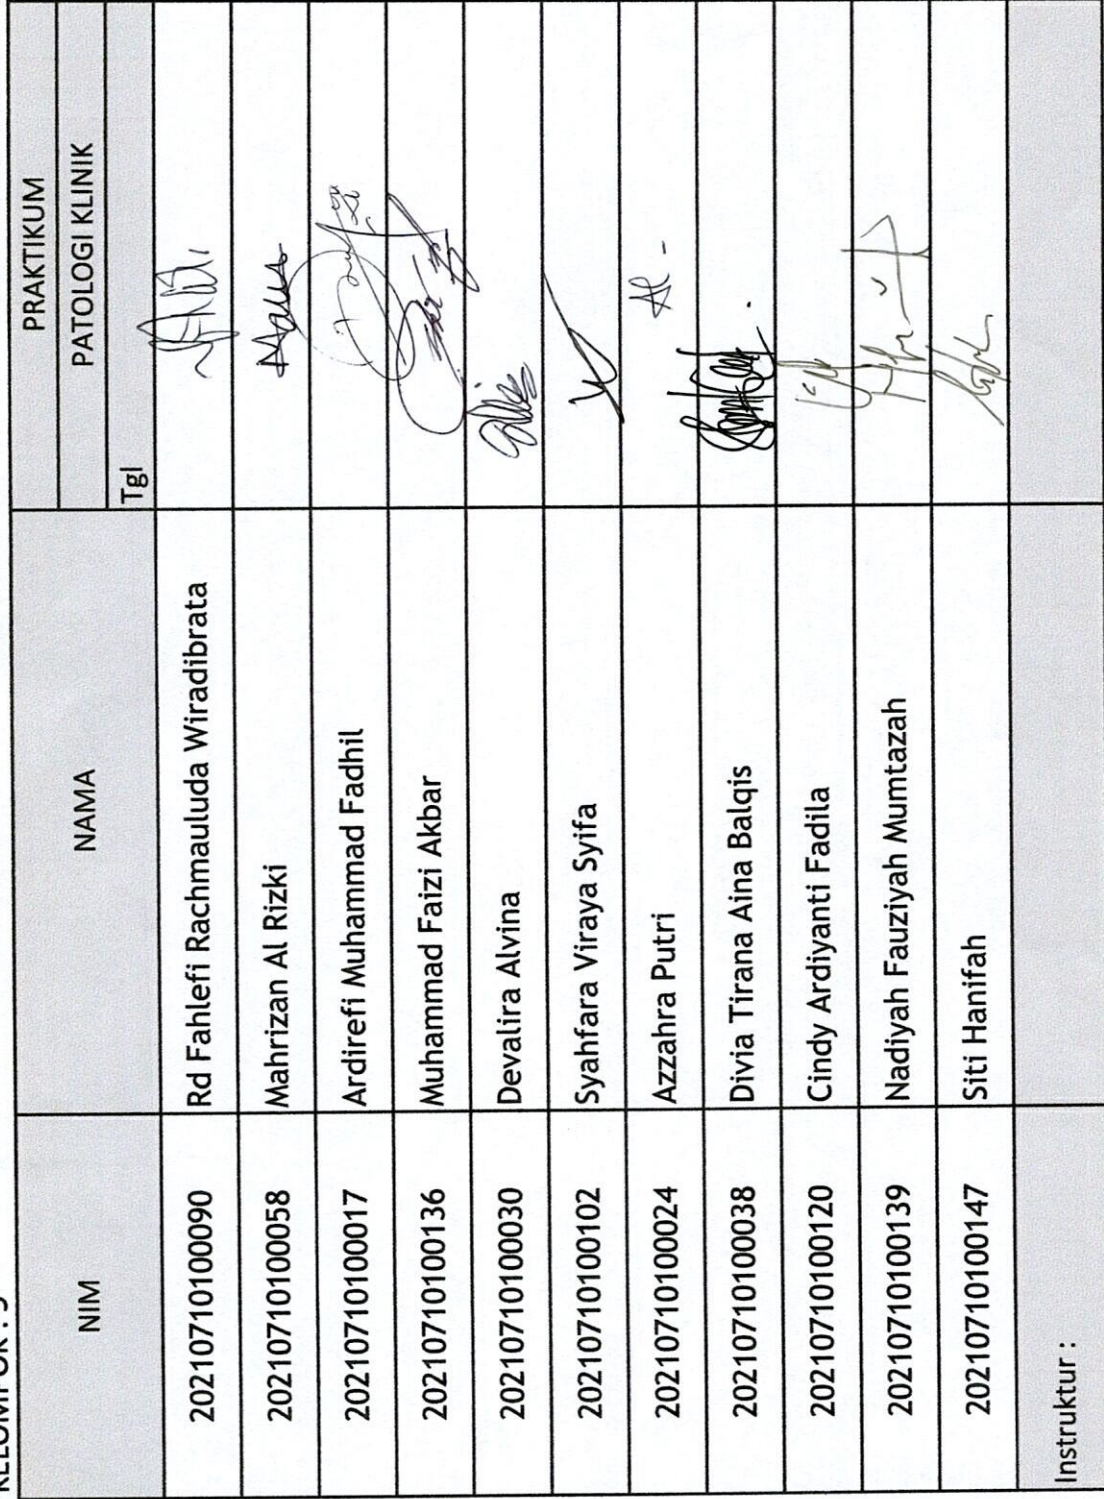 KELOMPOK : 5
NIM NAMA PRAKTIKUM
PATOLOGI KLINIK
Tgl
20210710100090 Rd Fahlefi Rachmauluda Wiradibrata
20210710100058 Mahrizan Al Rizki
20210710100017 Ardirefi Muhammad Fadhil
20210710100136 Muhammad Faizi Akbar
20210710100030 Devalira Alvina
20210710100102 Syahfara Viraya Syifa
20210710100024 Azzahra Putri
20210710100038 Divia Tirana Aina Balqis
20210710100120 Cindy Ardiyanti Fadila
20210710100139 Nadiyah Fauziyah Mumtazah
20210710100147 Siti Hanifah
Instruktur :